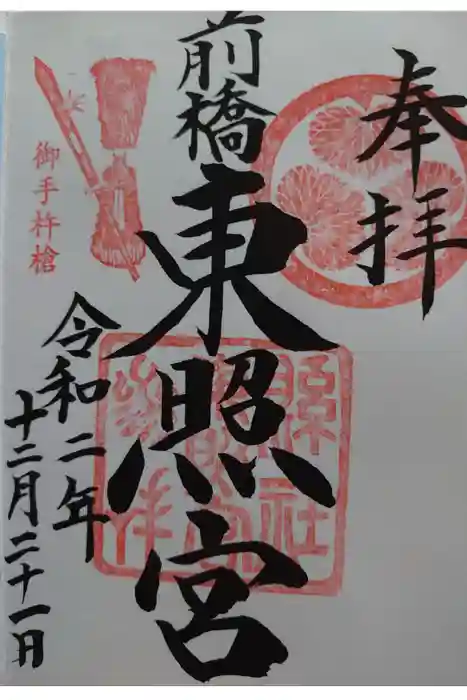 奉拝
前橋
東照宮
御手杵槍
令和二年
十二月二十一日
縣社